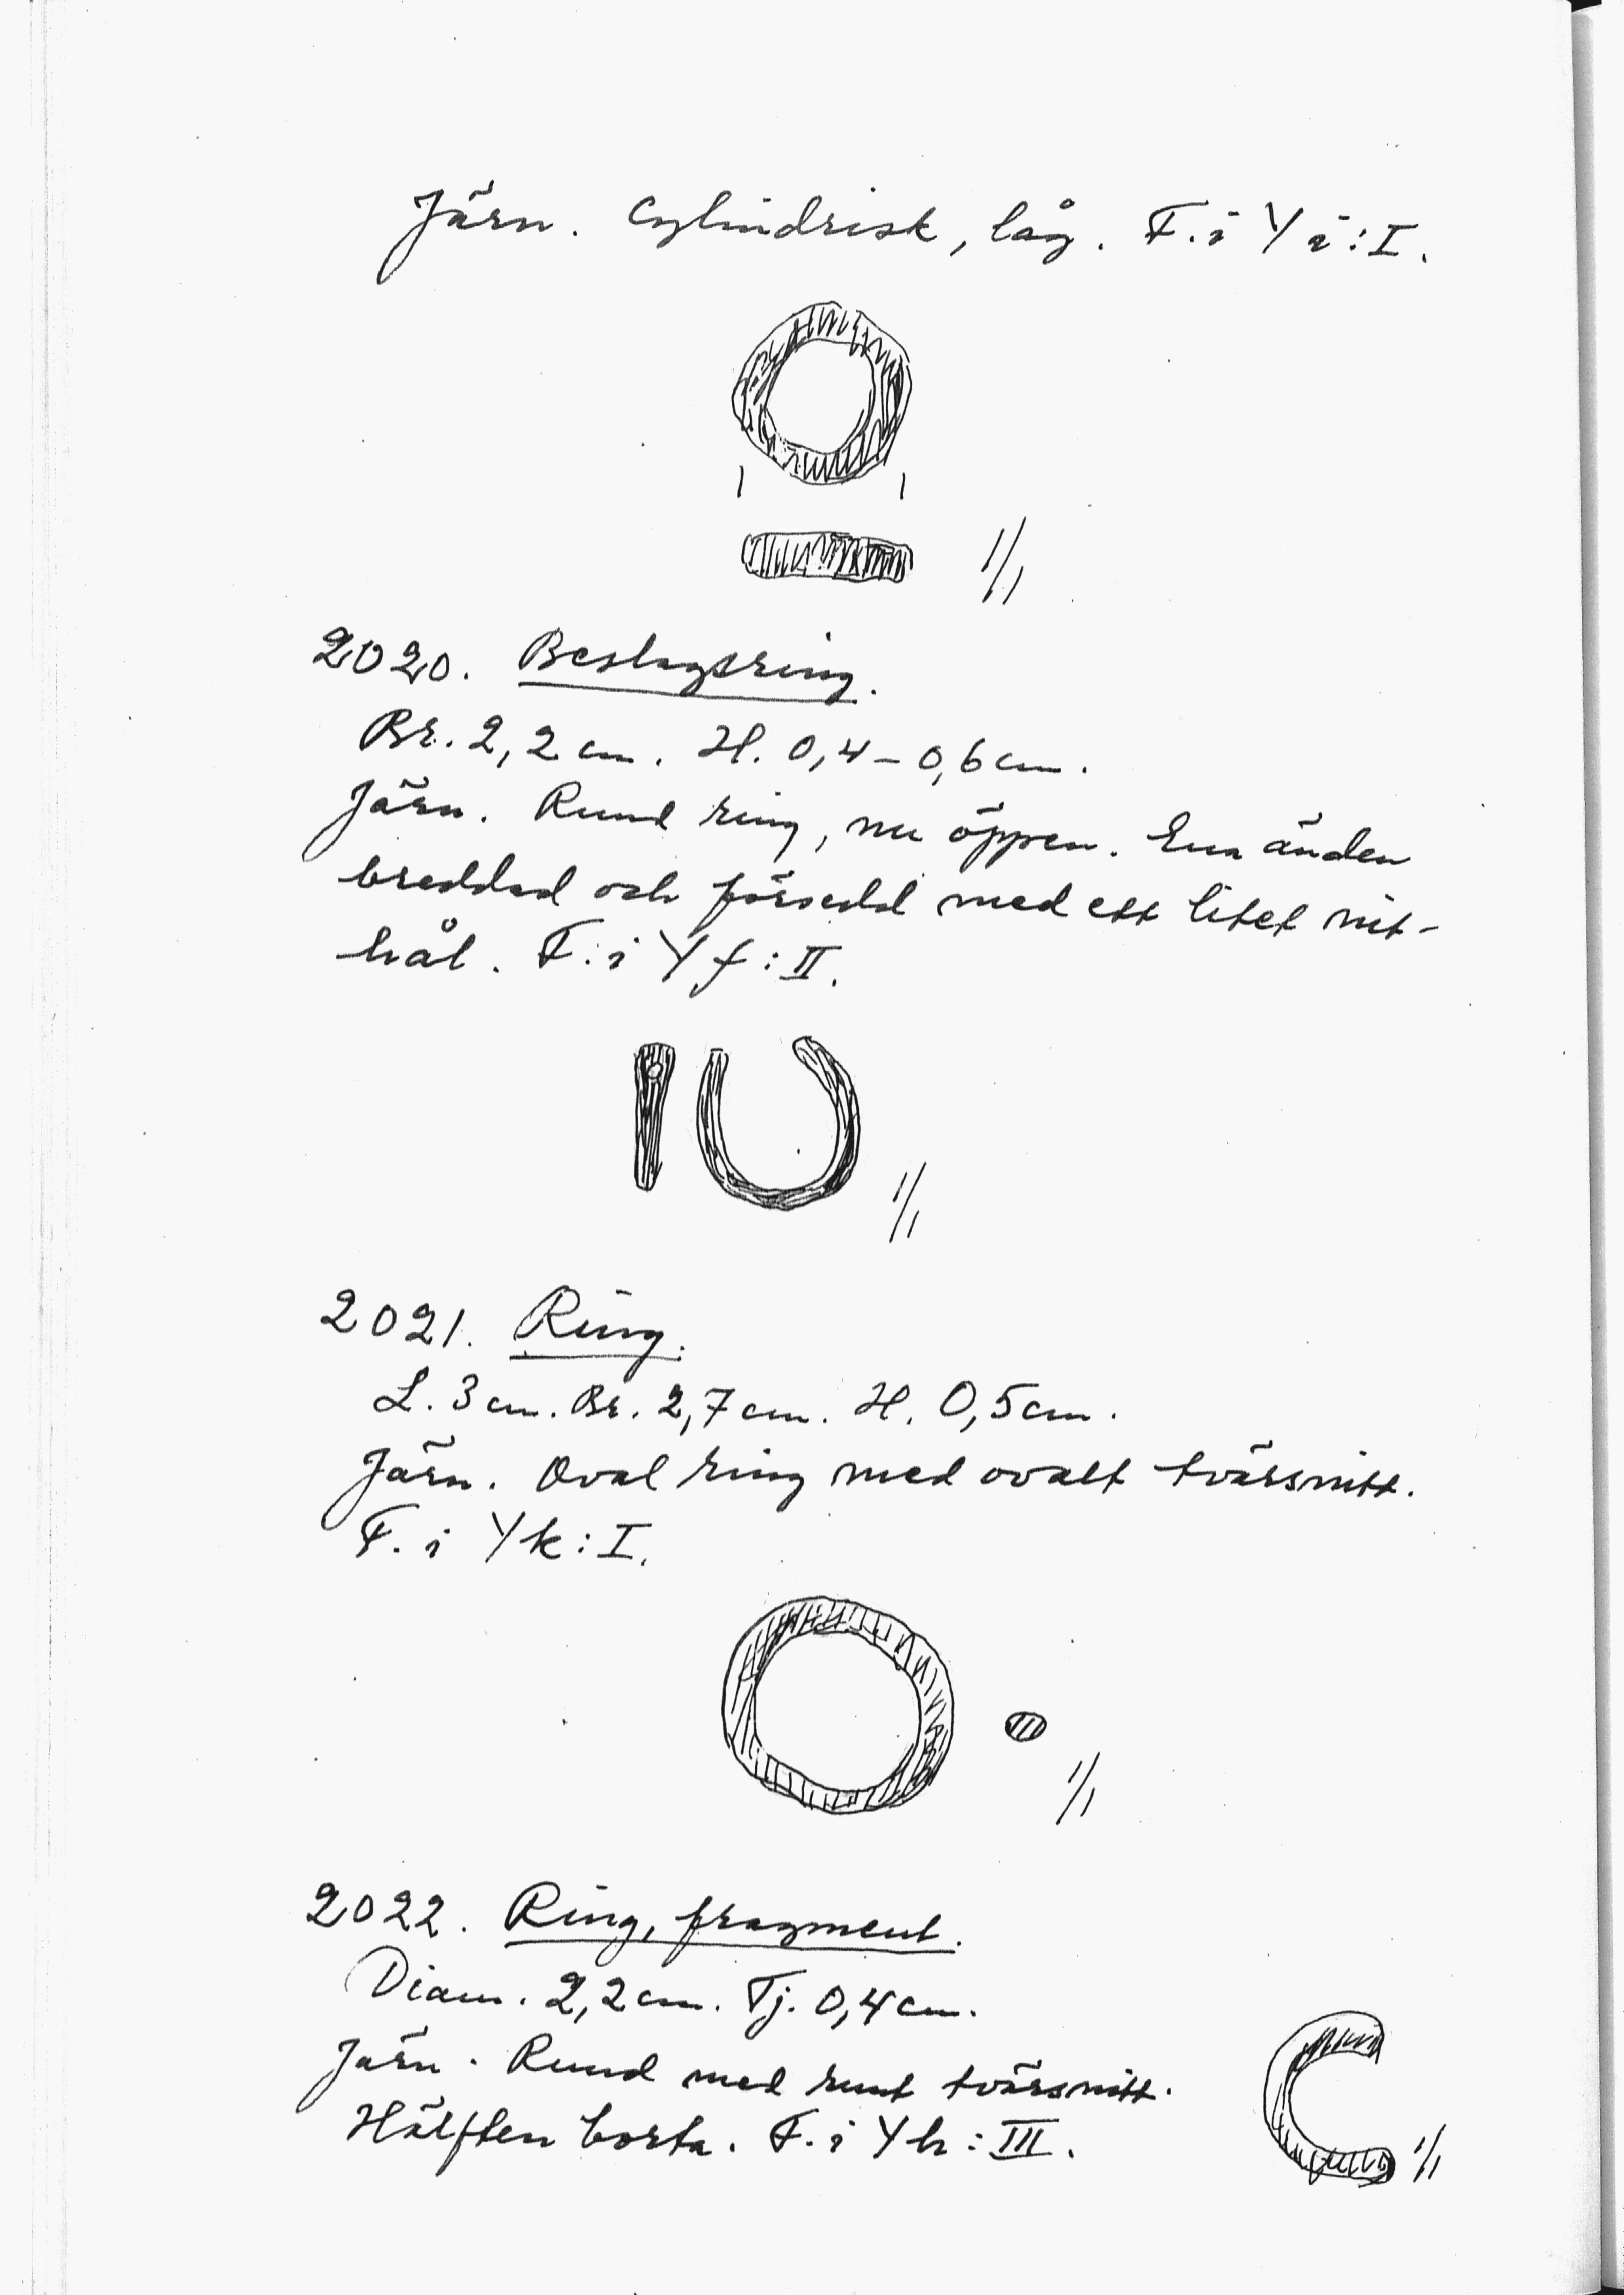 Järn. Cylindrisk, låg. F. i Y i : I.
1/1
2020. Beslagsring.
Br. 2,2 cm. H. 0,4 – 0,6 cm.
Järn. Rund ring, nu öppen. Ena änden
breddad och försedd med ett litet nit-
hål. F. i Y f : II.
1/1
2021. Ring.
L. 3 cm. Br. 2,7 cm. H. 0,5 cm.
Järn. Oval ring med ovalt tvärsnitt.
F. i Y k : I.
1/1
2022. Ring, fragment.
Diam. 2,2 cm. Tj. 0,4 cm.
Järn. Rund med runt tvärsnitt.
Hälften borta. F. i Y h : III.
1/1